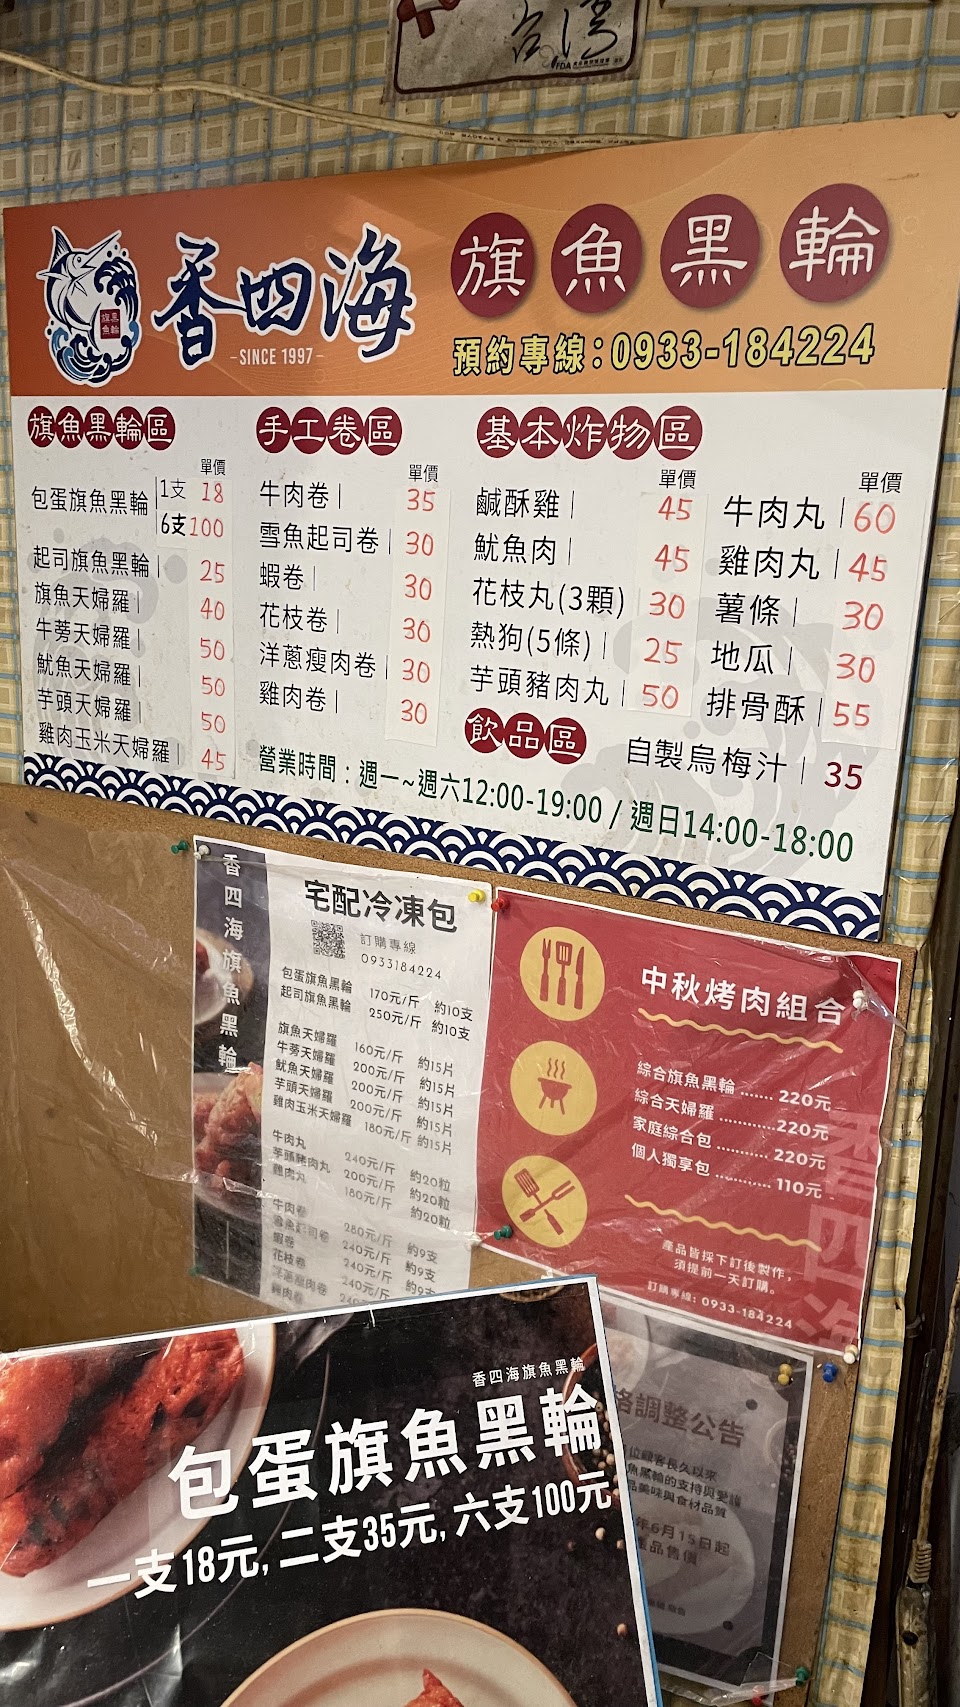 台灣
香四海
-SINCE 1997-
旗魚黑輪
旗魚黑輪
預約專線：0933-184224
旗魚黑輪區
單價
包蛋旗魚黑輪 1支 18
6支 100
起司旗魚黑輪 25
旗魚天婦羅 40
牛蒡天婦羅 50
魷魚天婦羅 50
芋頭天婦羅 50
雞肉玉米天婦羅 45
手工卷區
單價
牛肉卷 35
雪魚起司卷 30
蝦卷 30
花枝卷 30
洋蔥瘦肉卷 30
雞肉卷 30
基本炸物區
單價
鹹酥雞 45
魷魚肉 45
花枝丸(3顆) 30
熱狗(5條) 25
芋頭豬肉丸 50
單價
牛肉丸 60
雞肉丸 45
薯條 30
地瓜 30
排骨酥 55
飲品區
自製烏梅汁 35
營業時間：週一~週六12:00-19:00 / 週日14:00-18:00
香四海旗魚黑輪
宅配冷凍包
訂購專線
0933184224
包蛋旗魚黑輪 170元/斤 約10支
起司旗魚黑輪 250元/斤 約10支
旗魚天婦羅 160元/斤 約15片
牛蒡天婦羅 200元/斤 約15片
魷魚天婦羅 200元/斤 約15片
芋頭天婦羅 200元/斤 約15片
雞肉玉米天婦羅 180元/斤 約15片
牛肉丸 240元/斤 約20粒
芋頭豬肉丸 200元/斤 約20粒
雞肉丸 180元/斤 約20粒
牛肉卷 280元/斤 約9支
雪魚起司卷 240元/斤 約9支
蝦卷 240元/斤 約9支
花枝卷 240元/斤
洋蔥瘦肉卷
雞肉卷
中秋烤肉組合
綜合旗魚黑輪 ........ 220元
綜合天婦羅 ............ 220元
家庭綜合包 ............ 220元
個人獨享包 ............ 110元
產品皆採下訂後製作，
須提前一天訂購。
訂購專線: 0933-184224
香四海
香四海旗魚黑輪
包蛋旗魚黑輪
一支18元, 二支35元, 六支100元
格調整公告
位顧客長久以來
魚黑輪的支持與愛護
品美味與食材品質
年6月15日起
產品售價